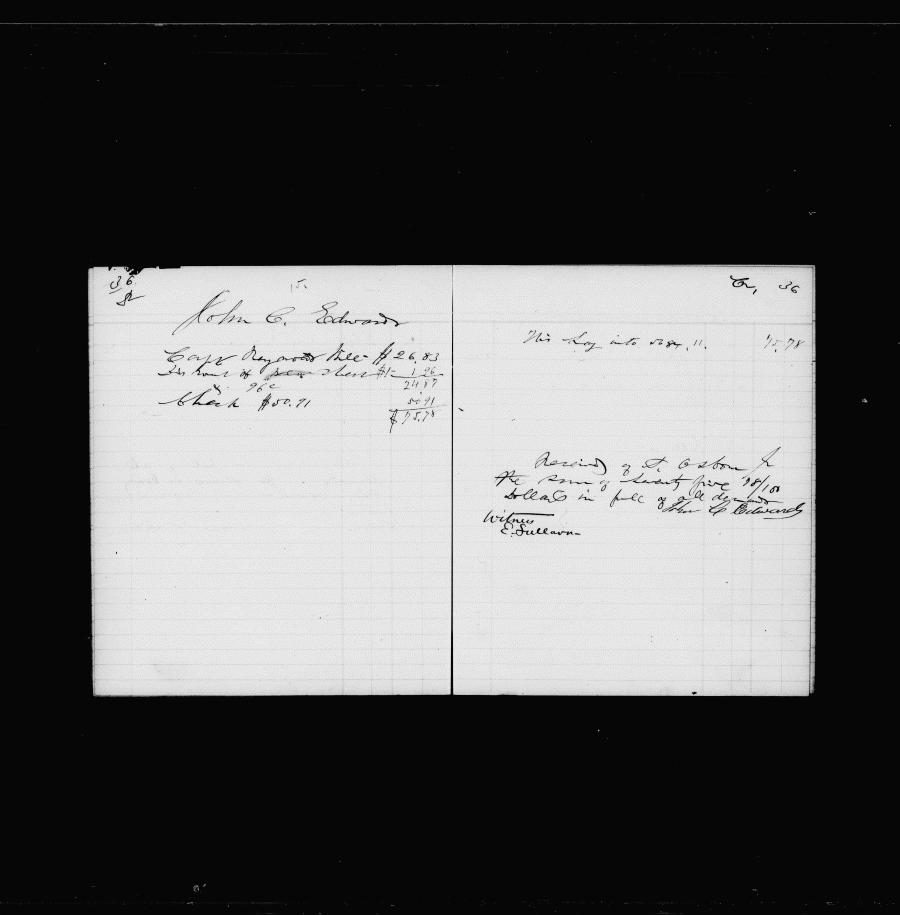 36
Dr
John C. Edwards
Capt Bill $26.83
Discount of $1- 1.96
96c
24 87
Check $50.91 50 91
$75.78
Cr, 36
His Lay 75.78
Received of Osborn Jr
the sum of Seventy five 78/100
Dollars in full of all demands
John C Edwards
Witness
E. Sullavn